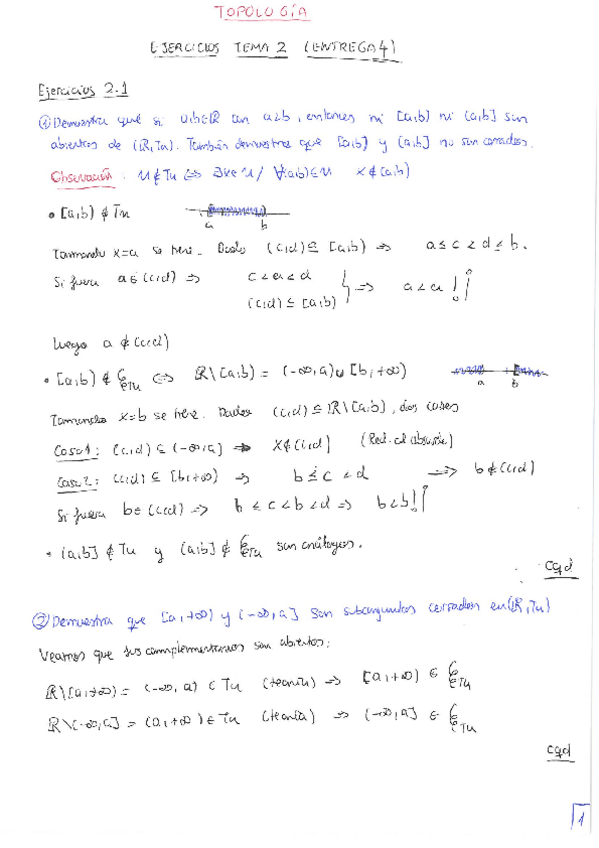 TOPOLOGÍA
EJERCICIOS TEMA 2 (ENTREGA 4)
Ejercicios 2.1
① Demuestra que si a,b∈ℝ con a<b, entonces ni [a,b) ni (a,b] son
abiertos de (ℝ,Tu). También demuestra que [a,b) y (a,b] no son cerrados.
Observación: U∉Tu ⇔ ∃x∈U / ∀(a,b)⊆U x∉(a,b)
• [a,b) ∉ Tu
a b
Tomando x=a se tiene. Dado (c,d) ⊆ [a,b) ⇒ a≤c<d≤b.
Si fuera a∈(c,d) ⇒ c<a<d
(c,d)⊆[a,b) ⇒ a<a !!
Luego a∉(c,d)
• [a,b) ∉ C_Tu ⇔ ℝ\[a,b) = (-∞,a)∪[b,+∞)
a b
Tomando x=b se tiene. Dados (c,d)⊆ℝ\[a,b), dos casos
Caso 1: (c,d)⊆(-∞,a) ⇒ x∉(c,d) (Red. al absurdo)
Caso 2: (c,d)⊆[b,+∞) ⇒ b≤c<d ⇒ b∉(c,d)
Si fuera b∈(c,d) ⇒ b≤c<b<d ⇒ b<b!!
• (a,b] ∉ Tu y (a,b] ∉ C_Tu son análogos.
cqd
② Demuestra que [a,+∞) y (-∞,a] son subconjuntos cerrados en (ℝ,Tu)
Veamos que sus complementarios son abiertos:
ℝ\[a,+∞) = (-∞,a) ∈ Tu (teoría) ⇒ [a,+∞) ∈ C_Tu
ℝ\(-∞,a] = (a,+∞) ∈ Tu (teoría) ⇒ (-∞,a] ∈ C_Tu
cqd
1